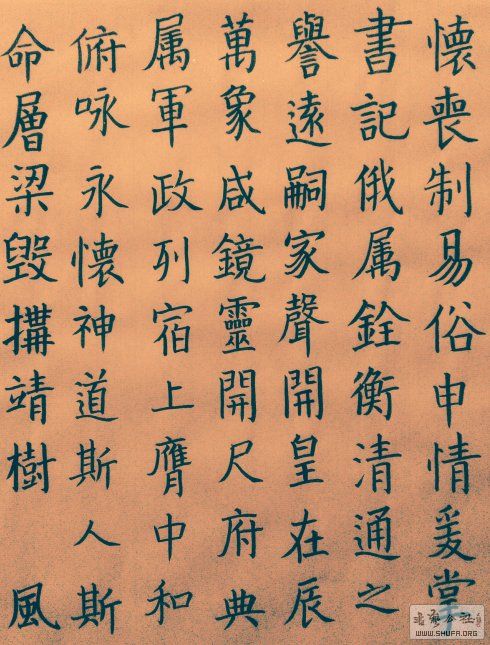 懷喪制易俗申情爰掌
書記俄属銓衡清通之
譽遠嗣家聲開皇在辰
萬象咸鏡靈開尺府典
属軍政列宿上膺中和
俯咏永懷神道斯人斯
命層梁毀搆靖樹 風
WWW.SHUFA.ORG